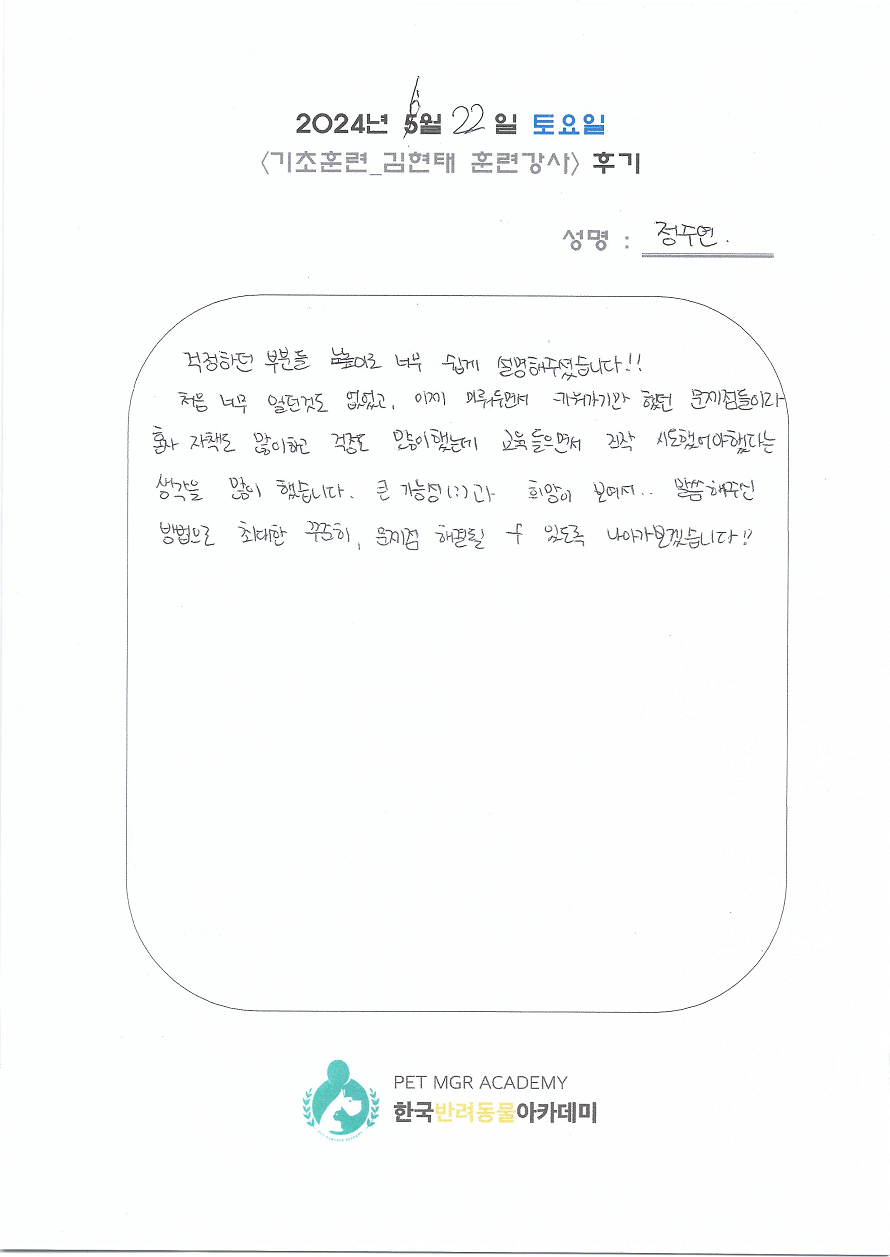 2024년 6월 22일 토요일
<기초훈련_김현태 훈련강사> 후기
성명 : 정수연.
걱정하던 부분들 눈높이로 너무 쉽게 설명해주셨습니다!!
처음 너무 알던것도 없었고, 이제 미뤄두면서 커져가기만 했던 문제점들이라
혼자 자책도 많이하고 걱정도 많이했는데 교육 들으면서 진작 시도했어야했다는
생각을 많이 했습니다. 큰 가능성(?)과 희망이 보여서.. 말씀해주신
방법으로 최대한 꾸준히, 문제점 해결될 수 있도록 나아가보겠습니다!!
PET MGR ACADEMY
한국반려동물아카데미